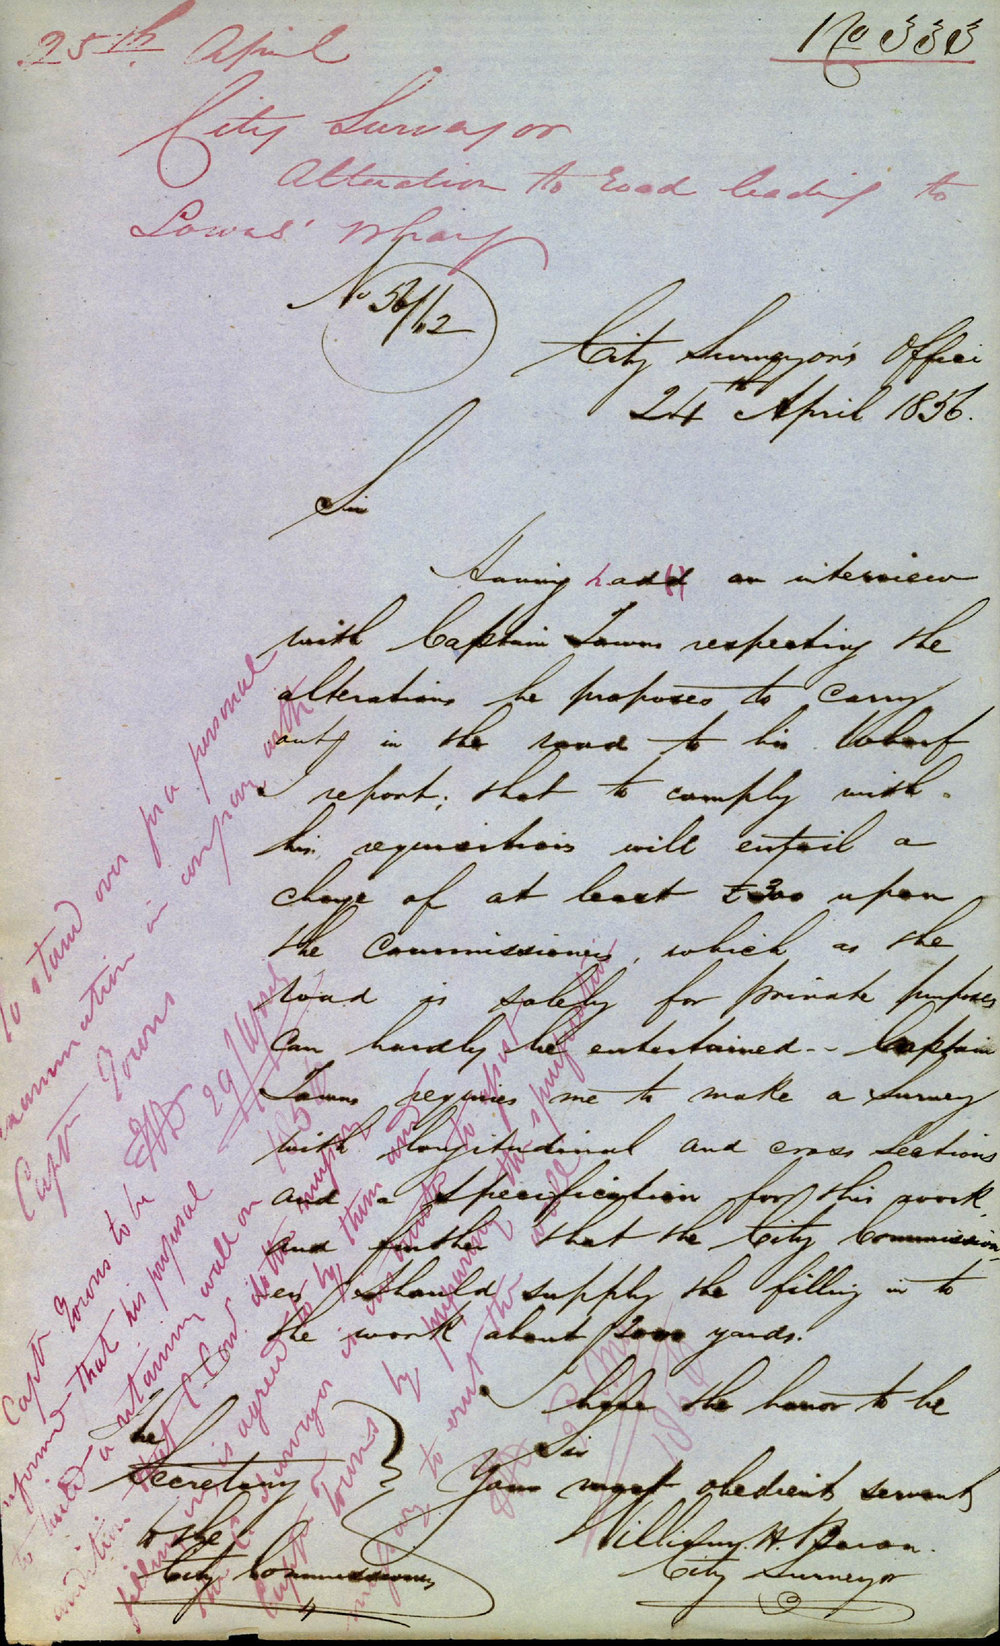 25th April
No 333
City Surveyor
Alteration to road leading to
Towns' Wharf
No 56/112
City Surveyor's Office
24th April 1856.
Sir
Having had an interview
with Captain Towns respecting the
alterations he proposes to carry
out in the road to his Wharf
I report; that to comply with
his requisitions will entail a
charge of at least £300 upon
the Commissioners, which as the
road is solely for private purposes
can hardly be entertained -- Captain
Towns requires me to make a survey
with longitudinal and cross sections
and a specification for this work,
and further that the City Commission-
ers should supply the filling in to
the work about 2000 yards.
I have the honor to be
Sir
Your most obedient servant
William H. Baron.
City Surveyor
The
Secretary
to the
City Commissioners
To stand over for a personal
examination in company with
Captn Towns
29 April
1856
Captn Towns to be
informed that his proposal
to build a retaining wall on
condition that C. Com.
filling in is agreed to by them and
the C Surveyor is to
Captn Towns by preparing the specification
to erect the wall